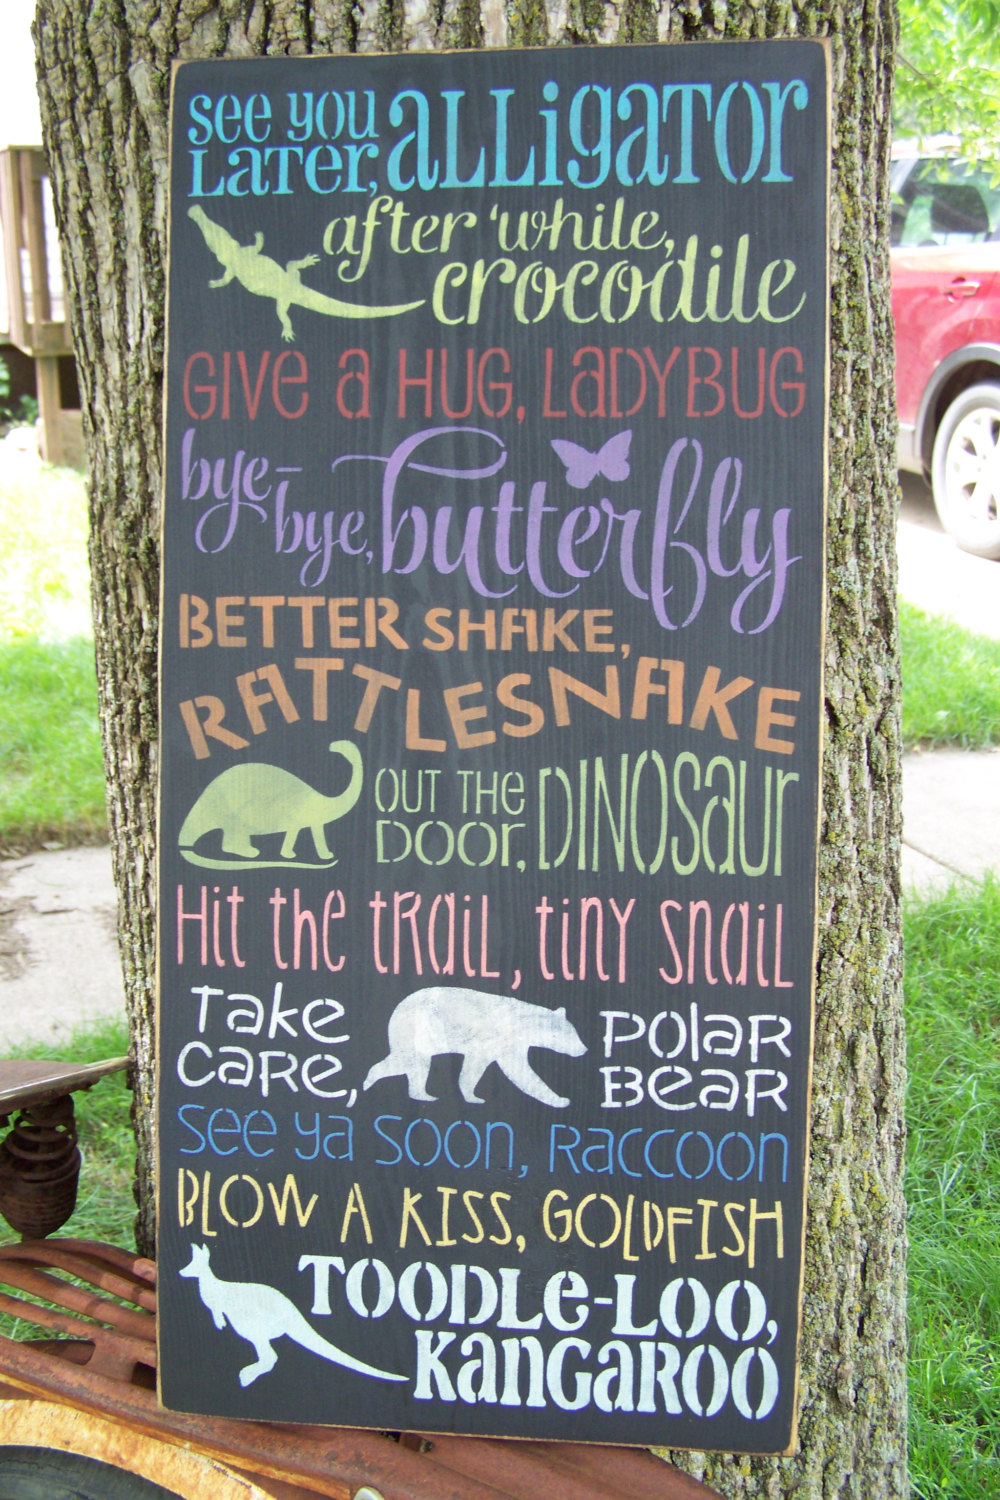 see you
Later, alligator
after 'while,
crocodile
GIVE a HUG, LaDYBUG
bye-
bye, butterfly
BETTER SHAKE,
RATTLESNAKE
OUT THE
DOOR, DINOSaur
Hit the tRaiL, tiny snaiL
Take
CaRe, POLaR
BeaR
see ya soon, Raccoon
BLOW A KISS, GOLDFISH
TOODLe-LOO,
KanGaROO